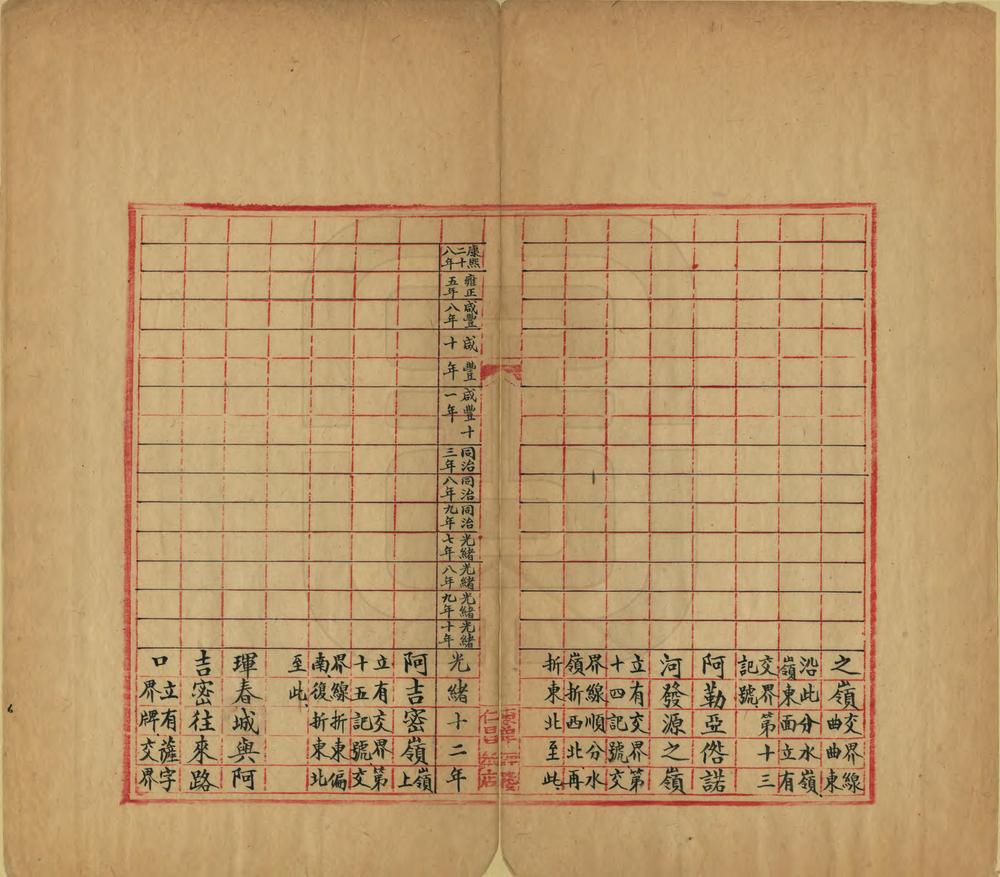 之嶺交界線
曲曲東
沿此分水嶺
嶺東面立有
交界第十三
記號
阿勒亞傛諾
河發源之嶺
立有交界第
十四記號交
界線順分水
嶺折西北再
折東北至此
仁昌紙店
康熙二十八年
雍正五年
咸豐八年
咸豐十年
咸豐十一年
同治三年
同治八年
同治九年
光緒七年
光緒八年
光緒九年
光緒十年
光緒十二年
阿吉密嶺嶺上
立有交界第
十五記號交
界線折東偏
南復折東北
至此
琿春城與阿
吉密往來路
口立有薩字
界牌交界